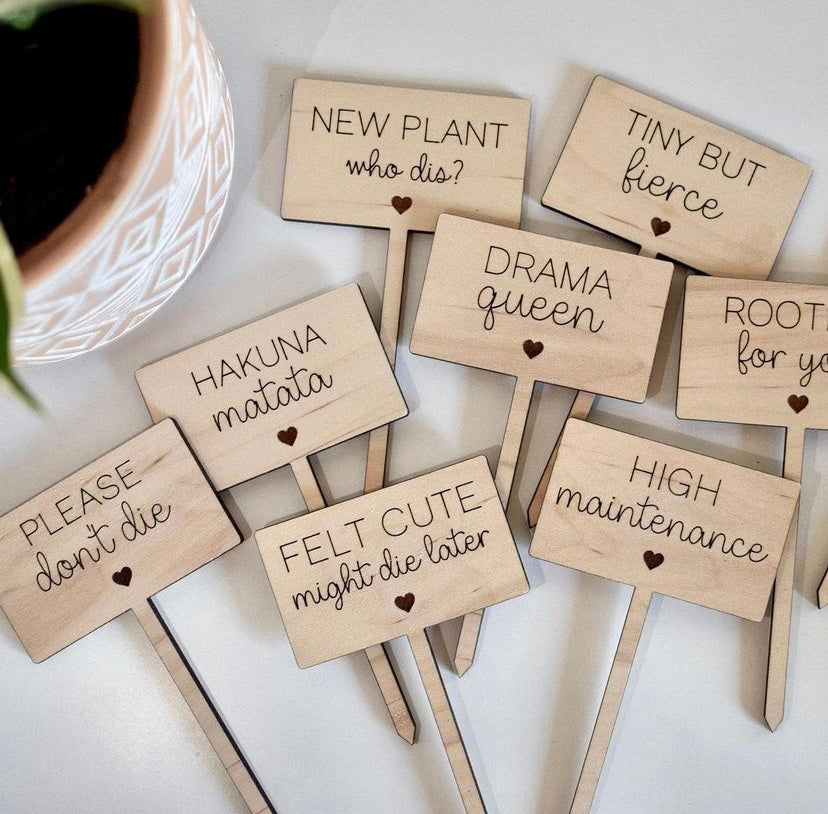 NEW PLANT
who dis?
TINY BUT
fierce
DRAMA
queen
for
HAKUNA
matata
PLEASE
don't die
FELT CUTE
might die later
HIGH
maintenance